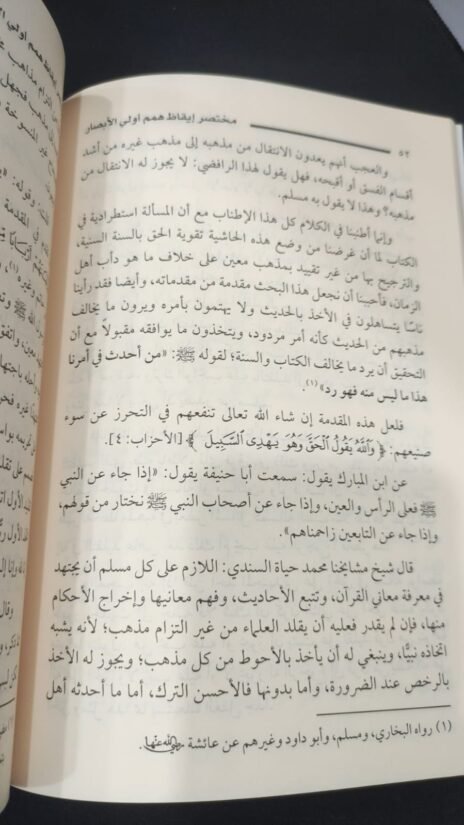 مختصر إيقاظ همم أولي الأبصار
٥٢
والعجب أنهم يعدون الانتقال من مذهبه إلى مذهب غيره من أشد
أقسام الفسق أو أقبحه، فهل يقول لهذا الرافضي: لا يجوز له الانتقال من
مذهبه؟ وهذا لا يقول به مسلم.
وإنما أطنبنا في الكلام كل هذا الإطناب مع أن المسألة استطرادية في
الكتاب لما أن غرضنا من وضع هذه الحاشية تقوية الحق بالسنة السنية،
والترجيح بها من غير تقييد بمذهب معين على خلاف ما هو دأب أهل
الزمان، فأحببنا أن نجعل هذا البحث مقدمة من مقدماته، وأيضا فقد رأينا
ناسًا يتساهلون في الأخذ بالحديث ولا يهتمون بأمره ويرون ما يخالف
مذهبهم من الحديث كأنه أمر مردود، ويتخذون ما يوافقه مقبولاً مع أن
التحقيق أن يرد ما يخالف الكتاب والسنة؛ لقوله ﷺ: «من أحدث في أمرنا
هذا ما ليس منه فهو رد»(١).
فلعل هذه المقدمة إن شاء الله تعالى تنفعهم في التحرز عن سوء
صنيعهم: ﴿وَٱللَّهُ يَقُولُ ٱلْحَقَّ وَهُوَ يَهْدِى ٱلسَّبِيلَ﴾ [الأحزاب: ٤].
عن ابن المبارك يقول: سمعت أبا حنيفة يقول: «إذا جاء عن النبي
ﷺ فعلى الرأس والعين، وإذا جاء عن أصحاب النبي ﷺ نختار من قولهم،
وإذا جاء عن التابعين زاحمناهم».
قال شيخ مشايخنا محمد حياة السندي: اللازم على كل مسلم أن يجتهد
في معرفة معاني القرآن، وتتبع الأحاديث، وفهم معانيها وإخراج الأحكام
منها، فإن لم يقدر فعليه أن يقلد العلماء من غير التزام مذهب؛ لأنه يشبه
اتخاذه نبيًّا، وينبغي له أن يأخذ بالأحوط من كل مذهب؛ ويجوز له الأخذ
بالرخص عند الضرورة، وأما بدونها فالأحسن الترك، أما ما أحدثه أهل
(١) رواه البخاري، ومسلم، وأبو داود وغيرهم عن عائشة رضي الله عنها.